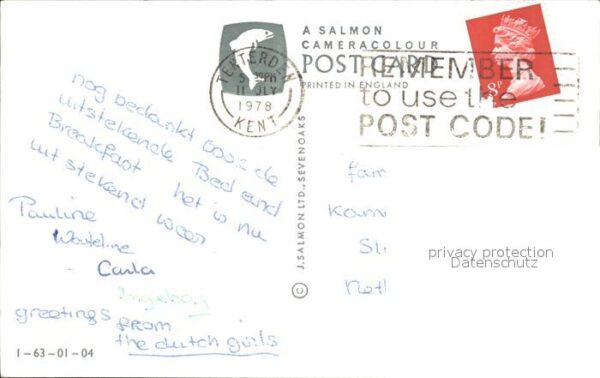 A SALMON
CAMERACOLOUR
POST CARD
PRINTED IN ENGLAND
TENTERDEN
11 JLY
1978
KENT
REMEMBER
to use the
POST CODE!
8P
nog bedankt voor de
uitstekende Bed and
Breakfast het is nu
uitstekend weer
Pauline
Wouteline
Carla
Ingeborg
greetings FROM
the dutch girls
J. SALMON LTD., SEVENOAKS ©
fam
Kam
St
Netl
privacy protection
Datenschutz
1-63-01-04